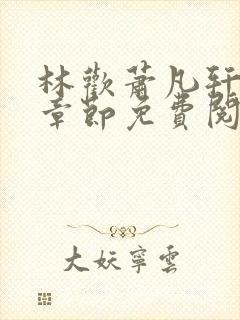 林歡蕭凡轩
章節免費閱
大妖寧雲